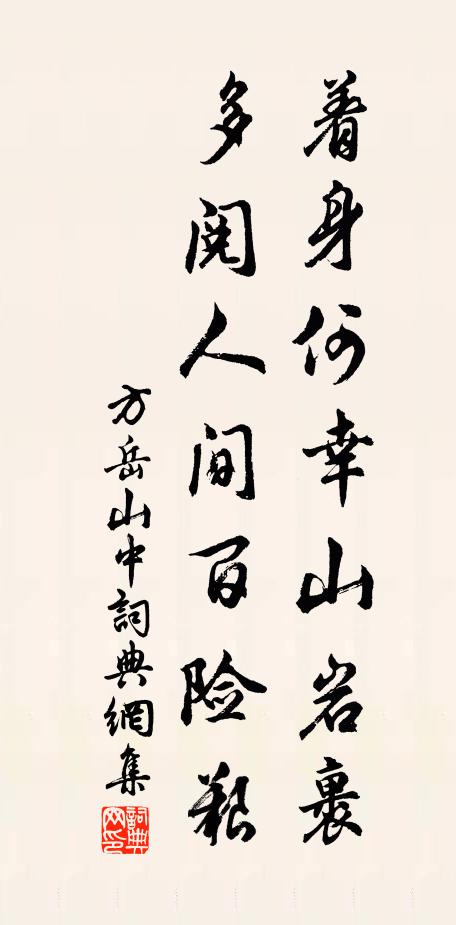 着身何幸山岩裏
多閱人间百险艱
方岳山中詞典網集
詞典網印